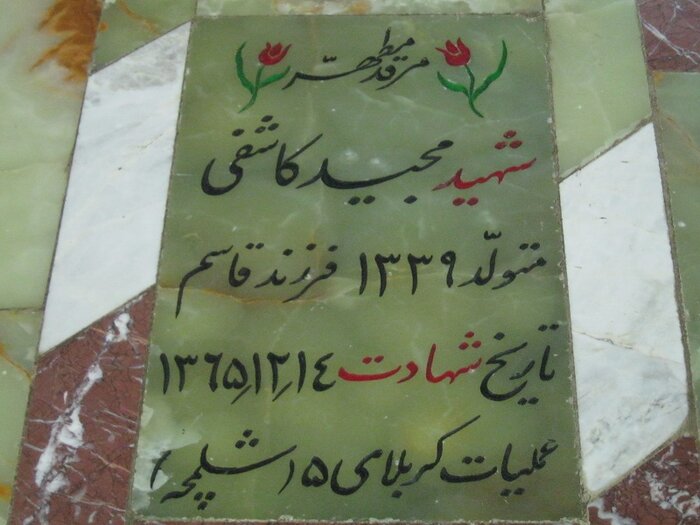 مرقد مطهّر
شهید مجید کاشفی
متولّد ۱۳۳۹ فرزند قاسم
تاریخ شهادت ۱۳۶۵٫۱۲٫۱۴
عملیات کربلای ۵ (شلمچه)